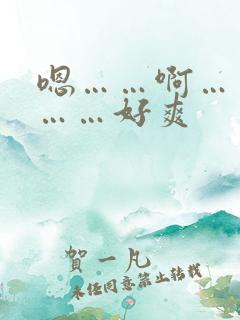 嗯……啊…
………好爽
賀一凡
未经同意禁止转载